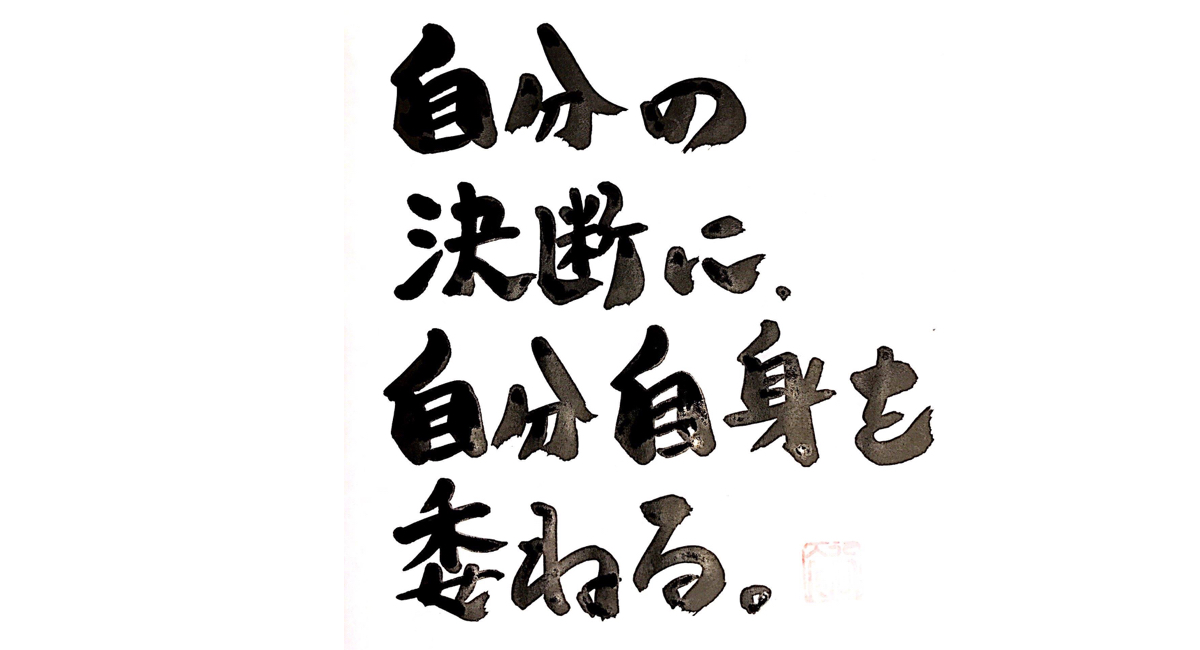 自分の
決断に、
自分自身を
委ねる。